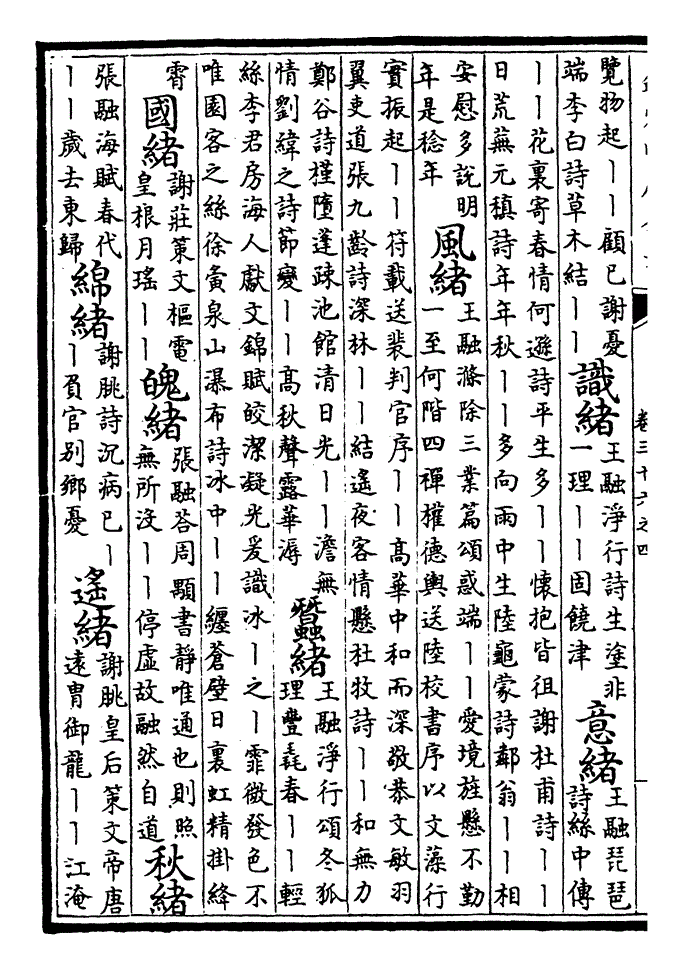 覽物起丨丨顧已謝憂
端李白詩草木結丨丨
識緒
王融淨行詩生塗非
一理丨丨固饒津
意緒
王融琵琶
詩絲中傳
丨丨花裏寄春情何遜詩平生多丨丨懷抱皆徂謝杜甫詩丨丨
日荒蕪元稹詩年年秋丨丨多向雨中生陸龜蒙詩鄰翁丨丨相
安慰多說明
年是稔年
風緒
王融滌除三業篇頌惑端丨丨愛境旌懸不勤
一至何階四禪權德輿送陸校書序以文藻行
實振起丨丨符載送裴判官序丨丨高華中和而深敬恭文敏羽
翼吏道張九齡詩深林丨丨結遙夜客情懸杜牧詩丨丨和無力
鄭谷詩槿墮蓬疎池館清日光丨丨澹無
情劉緯之詩節變丨丨高秋聲露華滓
蠶緒
王融淨行頌冬狐
理豐毳春丨丨輕
絲李君房海人獻文錦賦皎潔凝光爰識冰丨之丨霏微發色不
唯園客之絲徐夤泉山瀑布詩冰中丨丨纏蒼壁日裏虹精掛絳
霄
國緒
謝莊策文樞電
皇根月瑤丨丨
魄緒
張融荅周顒書靜唯通也則照
無所沒丨丨停虛故融然自道
秋緒
張融海賦春代
丨丨歲去東歸
綿緒
謝朓詩沉病已丨
丨負官别鄉憂
遙緒
謝朓皇后策文帝唐
遠胄御龍丨丨江淹
卷三十六之四